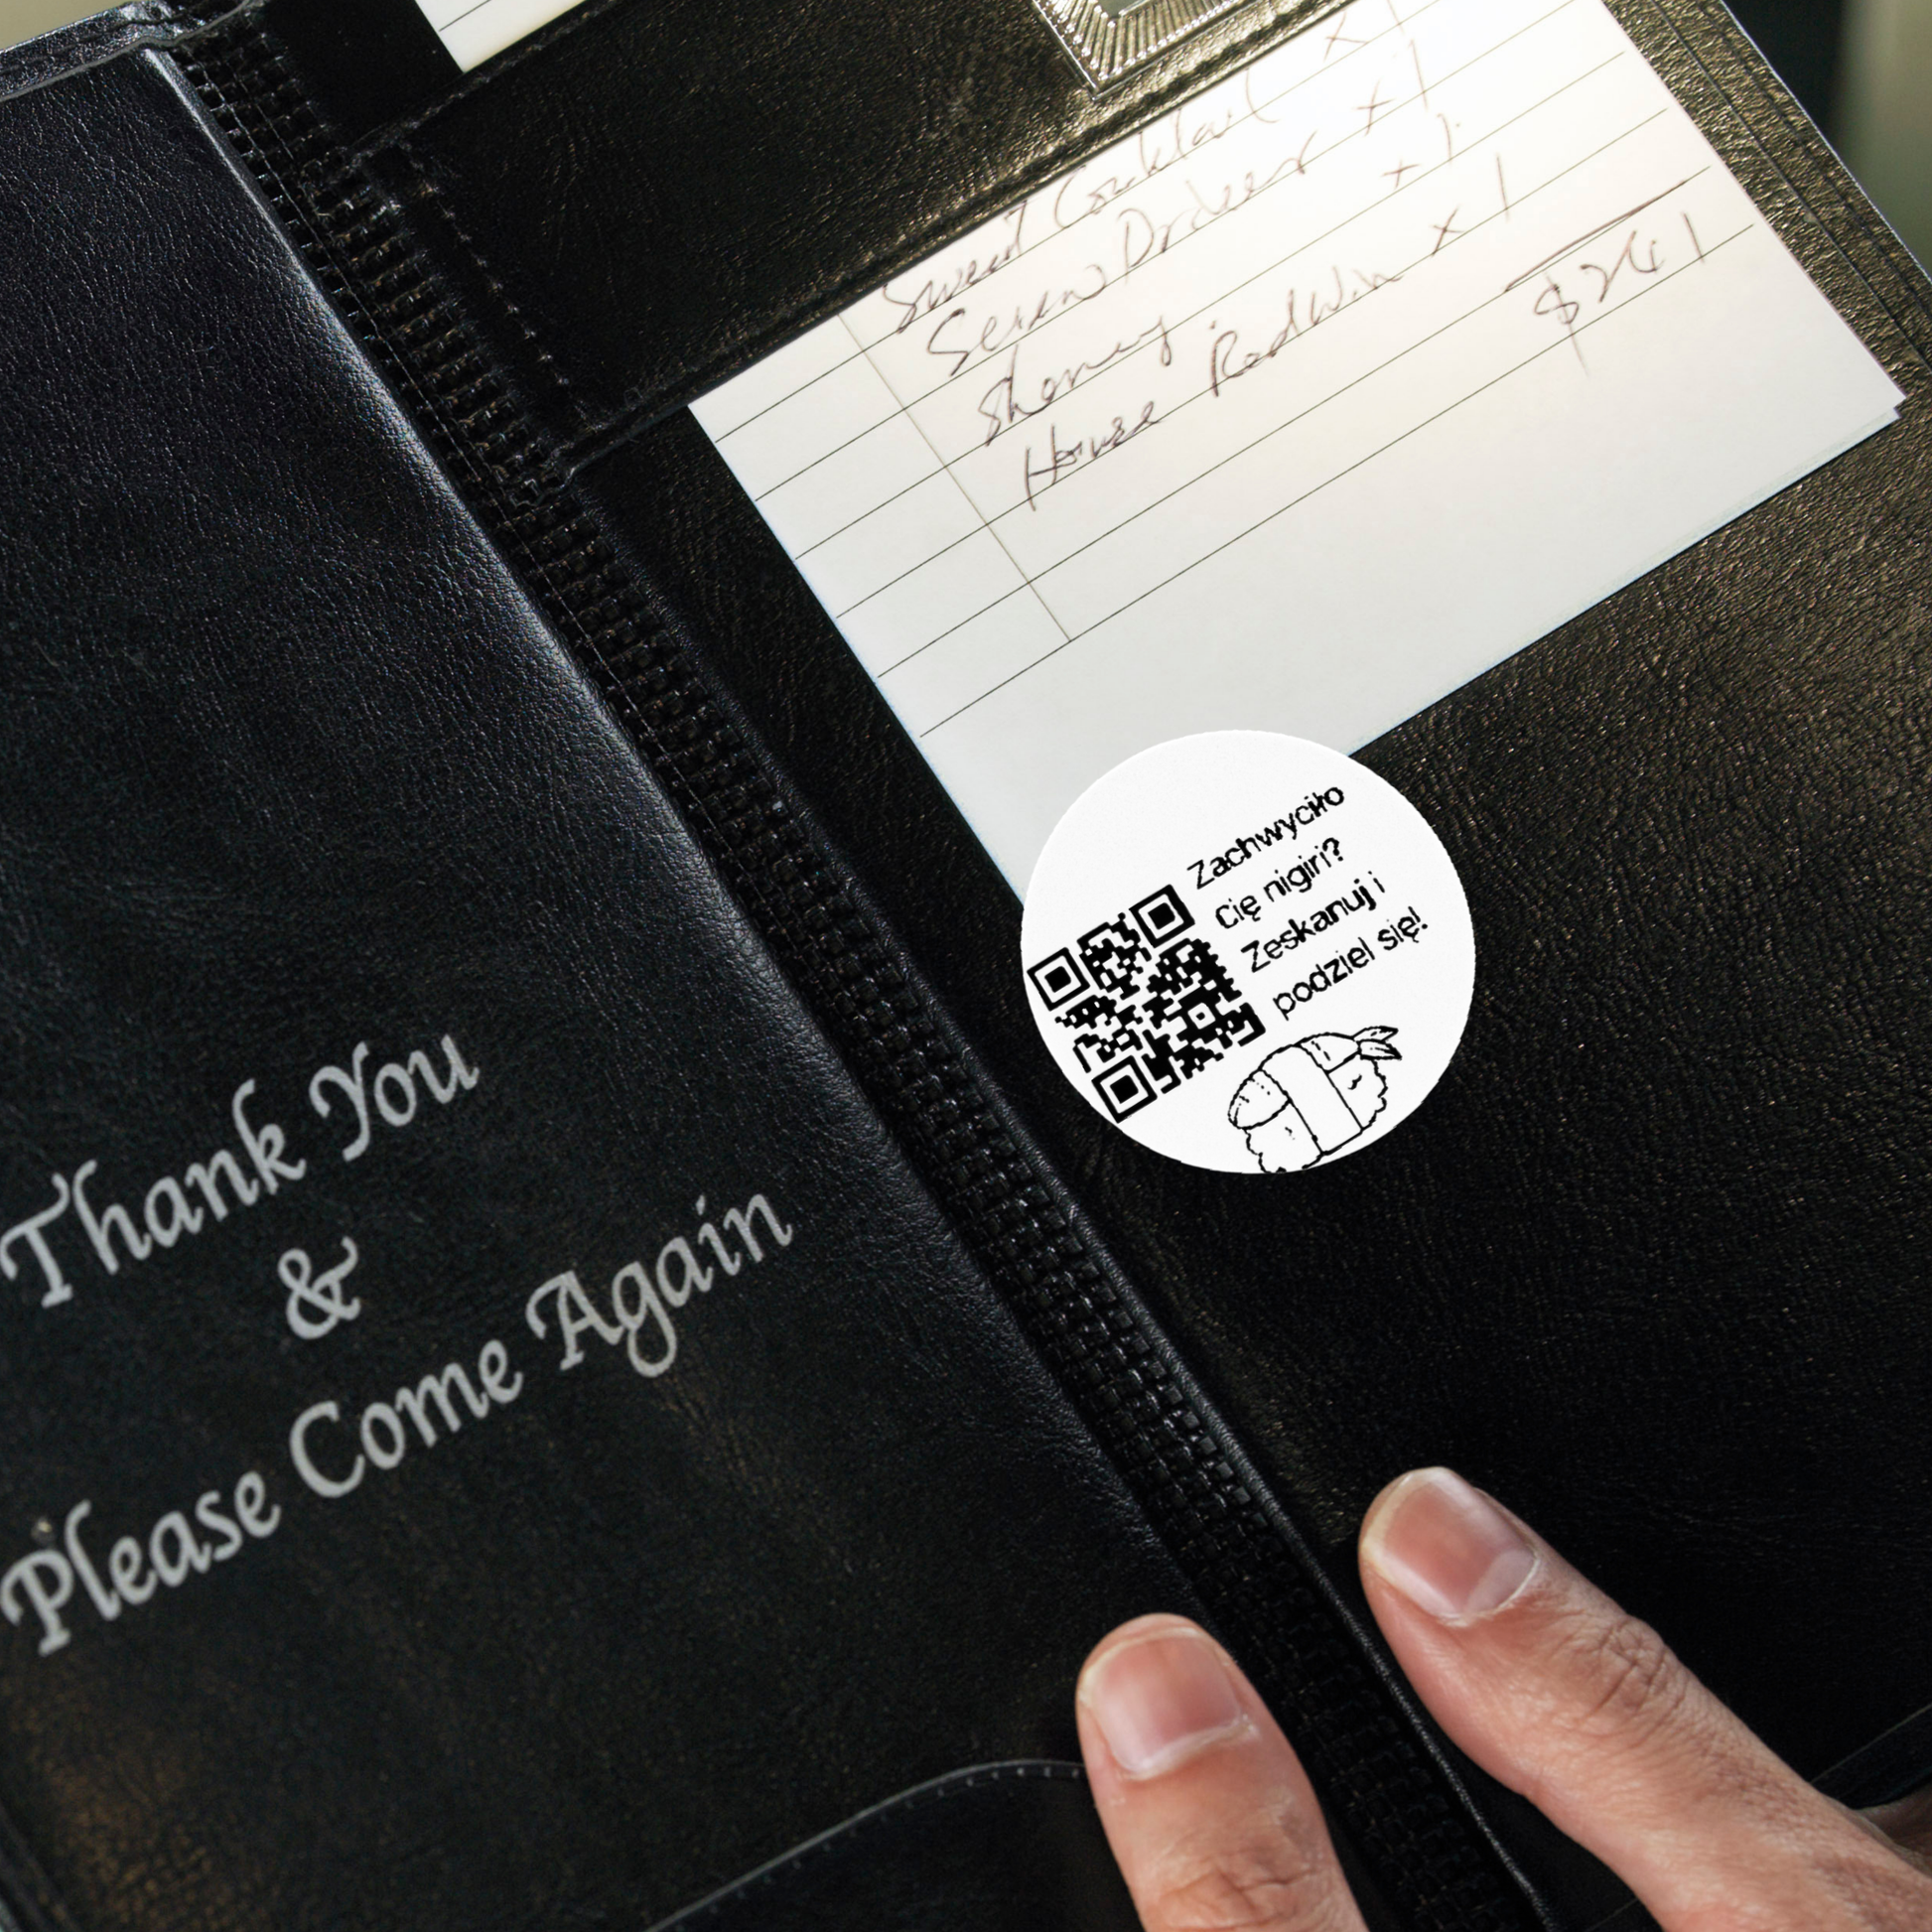 Sweet Cocktail x 1
Screw Driver x 1
Sherry x 1
House Redwin x 1
$241
Zachwyciło
Cię nigiri?
Zeskanuj i
podziel się!
Thank You
&
Please Come Again